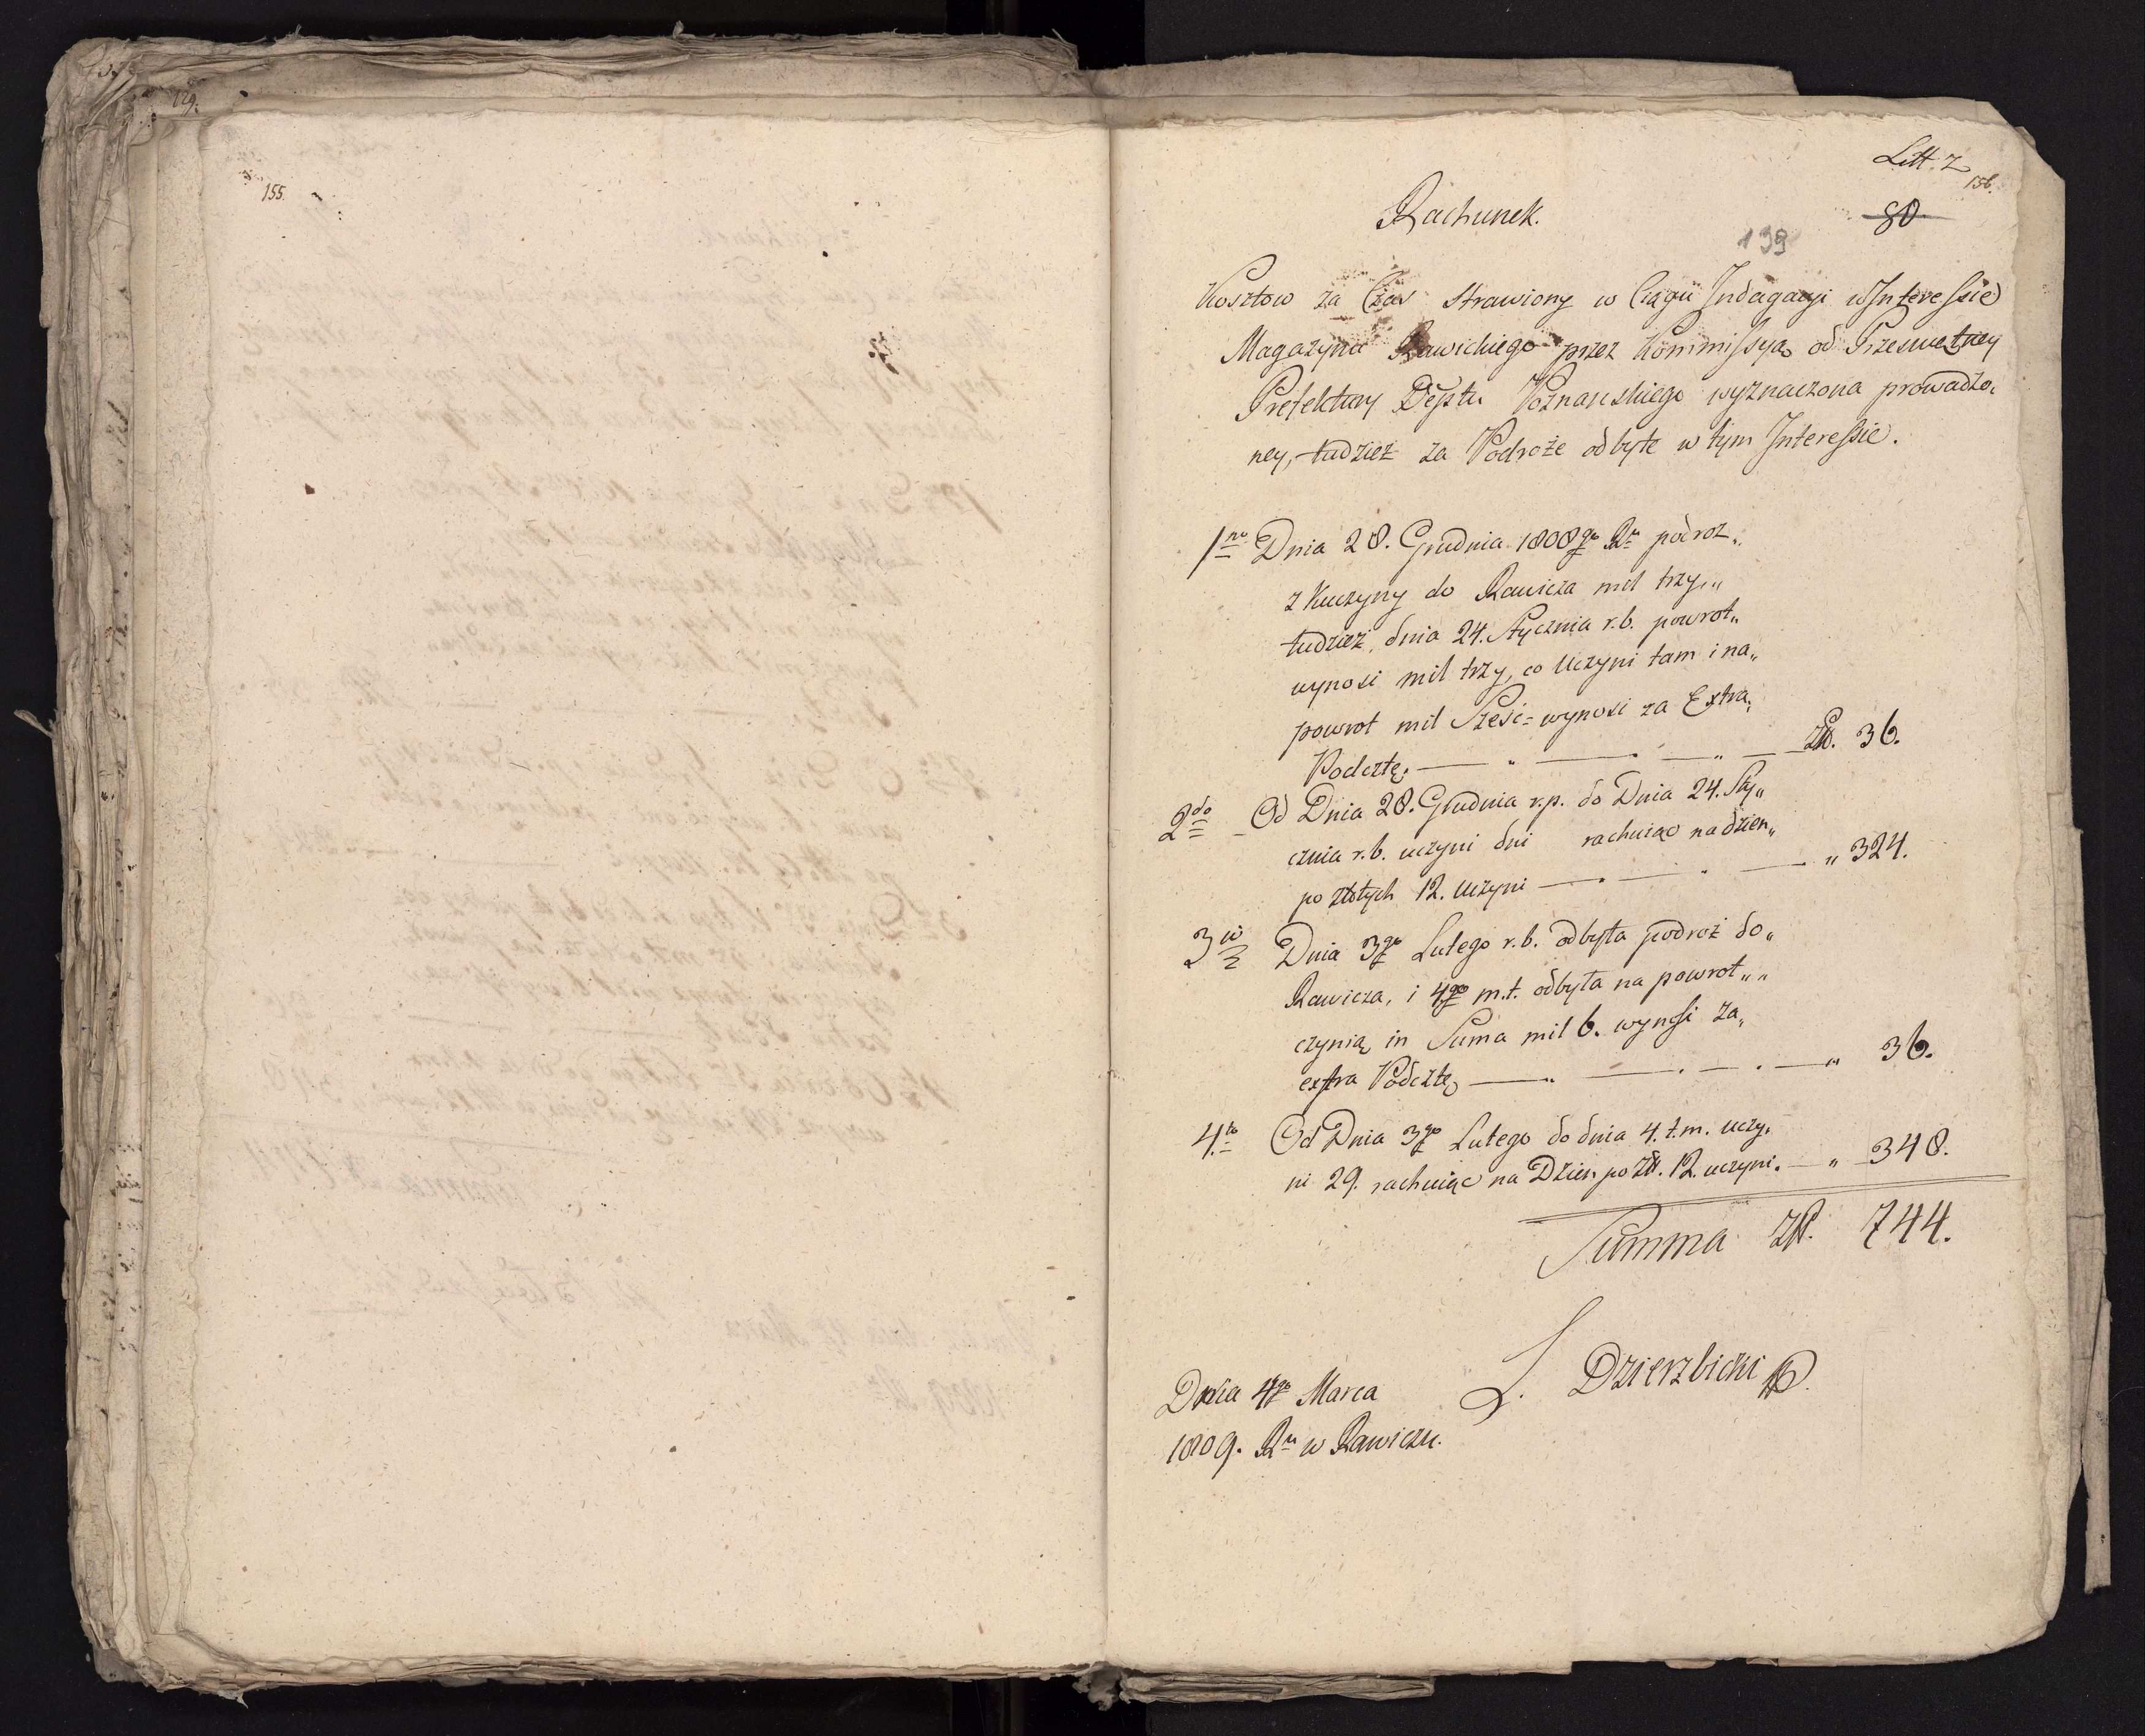 129.
155.
Litt. Z
156.
80.
139
Rachunek.
Kosztow za Czas strawiony w Ciągu Indagacyi w Interessie
Magazynu Rawickiego przez Kommissyą od Prześwietney
Prefektury Deptu Poznanskiego wyznaczona prowadzo„
ney, tudzież za Podroże odbyte w tym Interessie.
1mo Dnia 28. Grudnia 1808go Ru podroż„
z Kuczyny do Rawicza mil trzy„„
tudzież, dnia 24. Stycznia r.b. powrot„
wynosi mil trzy, co uczyni tam i na„
powrot mil Sześć= wynosi za Extra„
Podcztę. — „ — . — „ — Zł. 36.
2do Od Dnia 28. Grudnia r.p. do Dnia 24. Sty„
cznia r.b. uczyni dni rachuiąc na dzien„
po złotych 12. uczyni — . — . — „ 324.
3tio Dnia 3go Lutego r.b. odbyta podroż do„
Rawicza, i 4go m.t. odbyta na powrot„„
czynią in Suma mil 6. wynosi za„
extra Podcztę — „ — . — . — „ 36.
4to Od Dnia 3go Lutego do dnia 4. t.m. uczy„
ni 29. rachuiąc na Dzien po Zł. 12. uczyni. — „ 348.
Summa Zł. 744.
L. Dzierzbicki
Dnia 4go Marca
1809. Ru w Rawiczu.